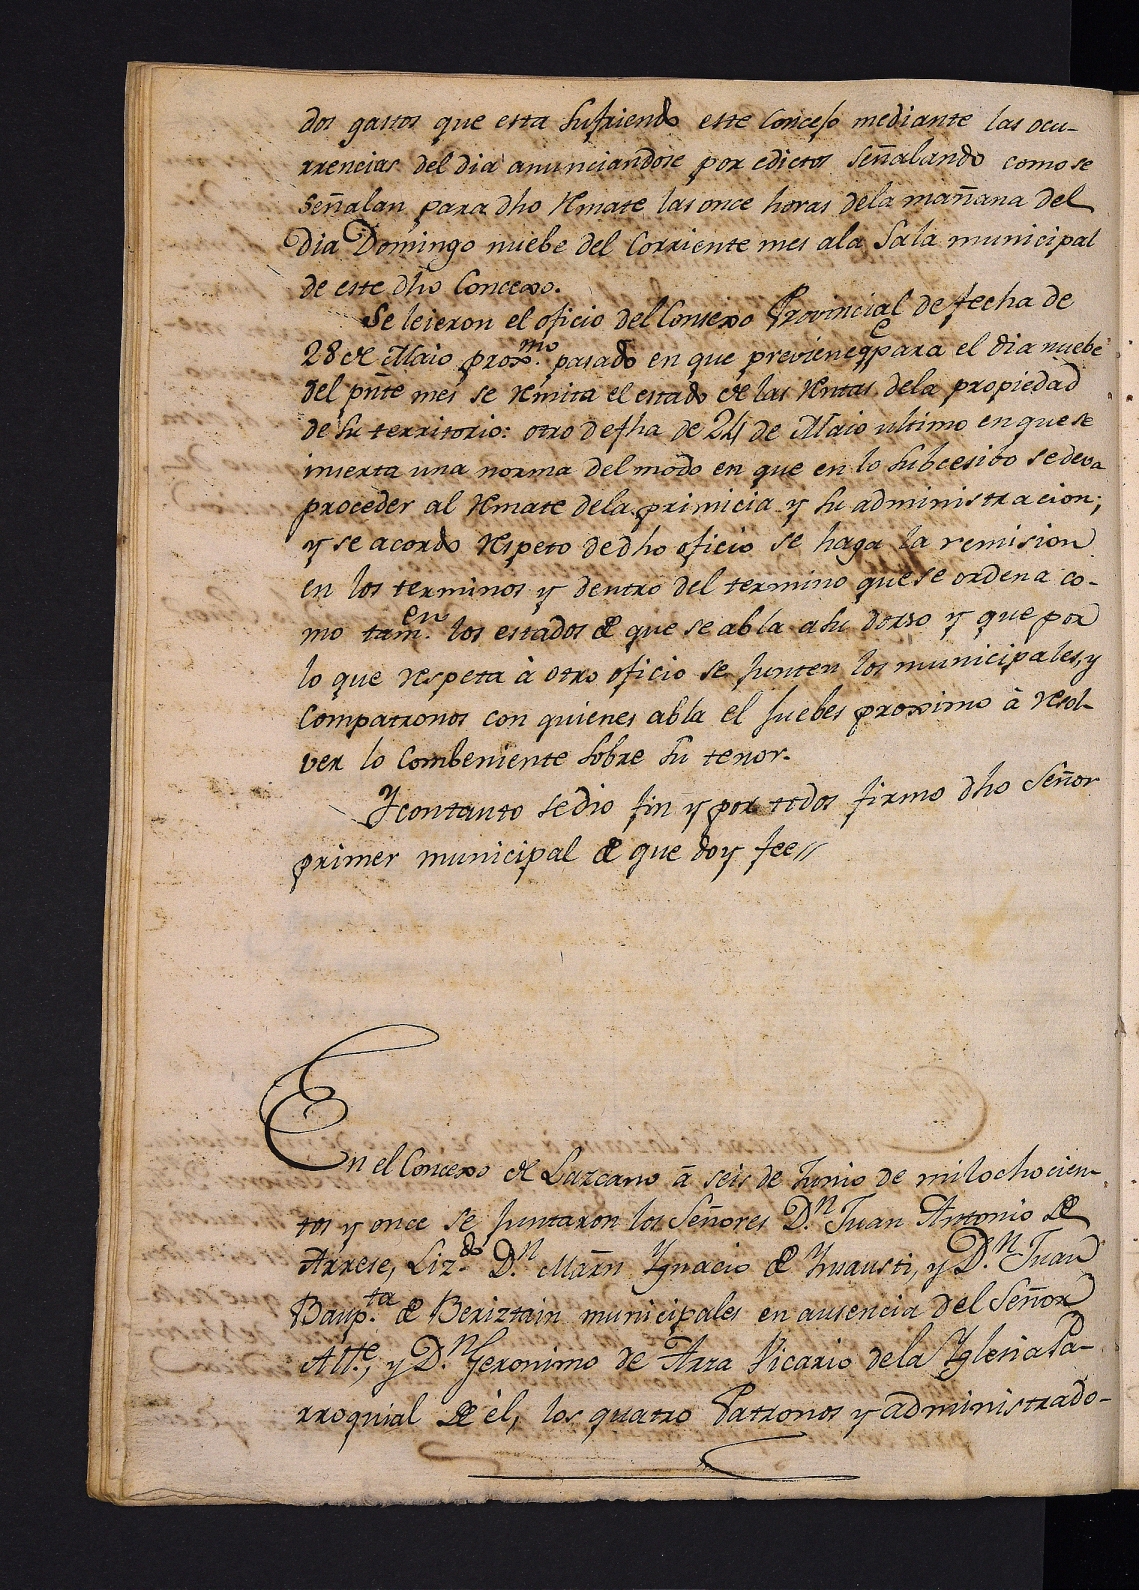 dos gastos que esta sufriendo este Concejo mediante las ocu-
rrencias del dia anunciandose por edictos señalando como se
señalan para dho Remate las once horas dela mañana del
Dia Domingo nuebe del Corriente mes ala Sala municipal
de este dho Concexo.
Se leieron el oficio del Consexo Provincial de fecha de
28 de Maio proxmo. pasado en que previene qe para el dia nuebe
del pnte mes se Remita el estado de las Rentas dela propiedad
de su territorio: otro defha de 24 de Maio ultimo en que se
inserta una norma del modo en que en lo subcesibo se deva
proceder al Remate dela primicia y su administracion;
y se acordo Respeto de dho oficio se haga la remision
en los terminos y dentro del termino que se ordena co-
mo tamen. los estados de que se abla a su dorso y que por
lo que respeta à otro oficio se junten los municipales, y
Compatronos con quienes abla el juebes proximo à resol-
ver lo Combeniente sobre su tenor.
Y contanto se dio fin y por todos firmo dho Señor
primer municipal de que doy fee//
En el Concexo de Lazcano â seis de Junio de mil ochocien-
tos y once se juntaron los Señores Dn. Juan Antonio de
Arrese, Lizdo. Dn. Marn Ygnacio de Ynsausti, y Dn. Juan
Baupta. de Beriztain municipales en ausencia del Señor
Altte, y Dn. Geronimo de Arza Vicario dela Yglesia Pa-
rroquial de èl, los quatro Patronos y administrado-